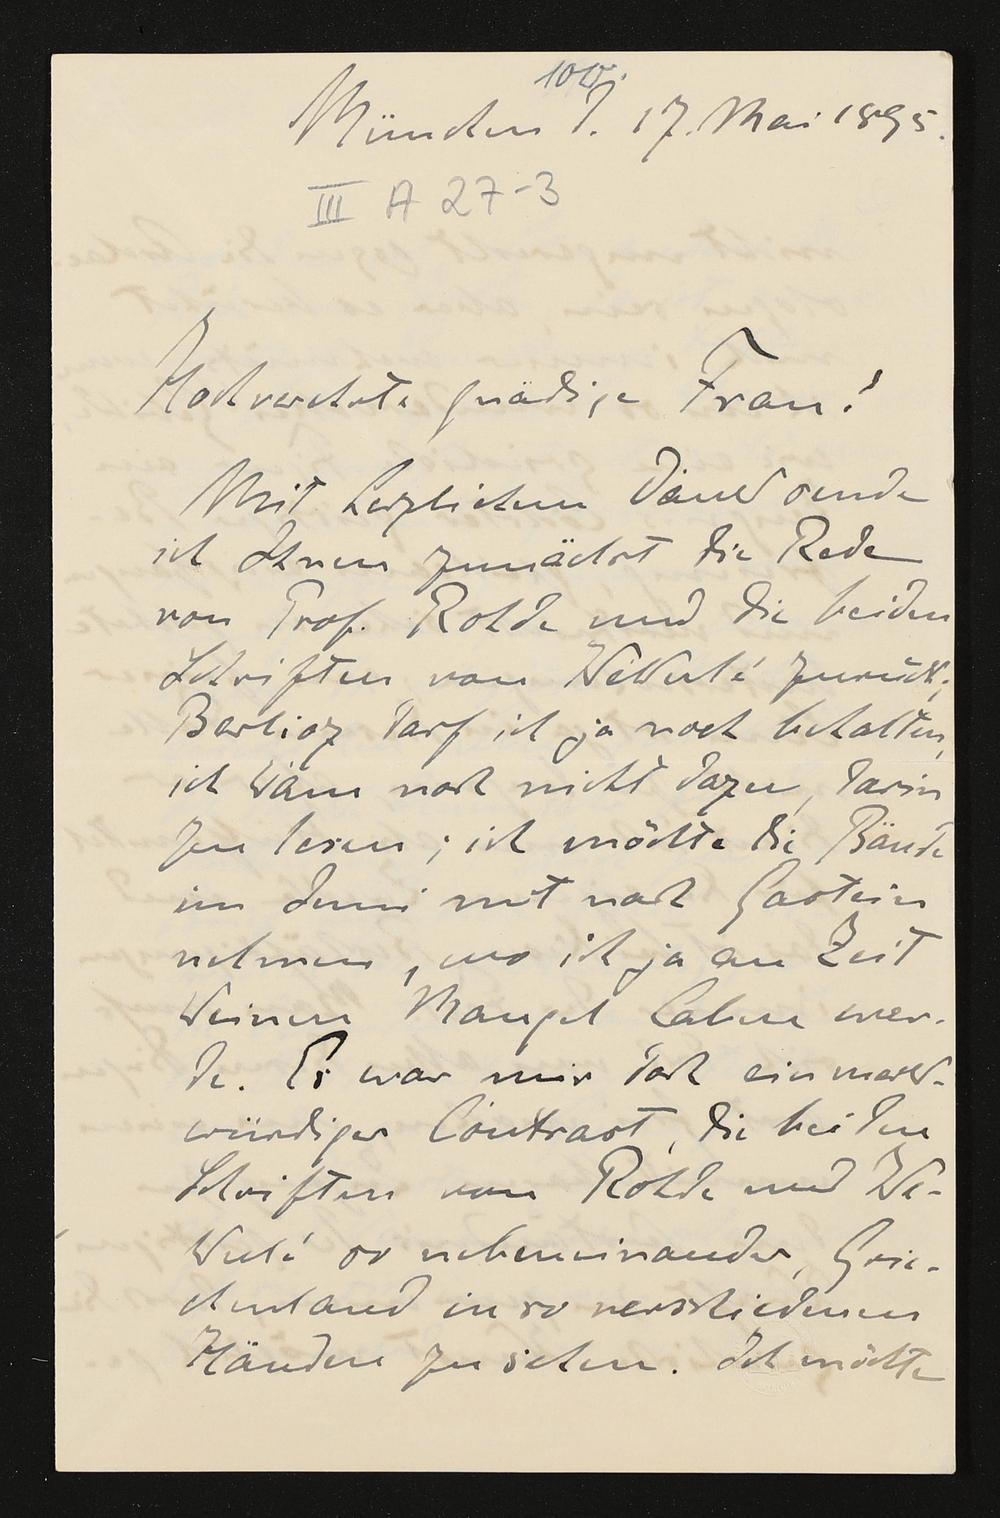 München d. 17. Mai 1895.
III A 27-3
Hochverehrte gnädige Frau!
Mit herzlichem Dank sende
ich Ihnen zunächst die Rede
von Prof. Rohde und die beiden
Schriften von Kekulé zurück;
Berlioz darf ich ja noch behalten,
ich kam noch nicht dazu, darin
zu lesen; ich möchte die Bände
im Juni mit nach Gastein
nehmen, wo ich ja an Zeit
keinen Mangel haben wer-
de. Es war mir doch ein merk-
würdiger Contrast, die beiden
Schriften von Rohde und Ke-
kulé so nebeneinander, Grie-
chenland in so verschiedenen
Händen zu sehen. Ich möchte